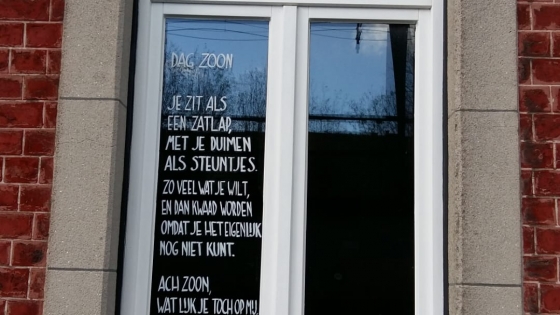 DAG ZOON
JE ZIT ALS
EEN ZATLAP,
MET JE DUIMEN
ALS STEUNTJES.
ZO VEEL WAT JE WILT,
EN DAN KWAAD WORDEN
OMDAT JE HET EIGENLIJK
NOG NIET KUNT.
ACH ZOON,
WAT LIJK JE TOCH OP MIJ.